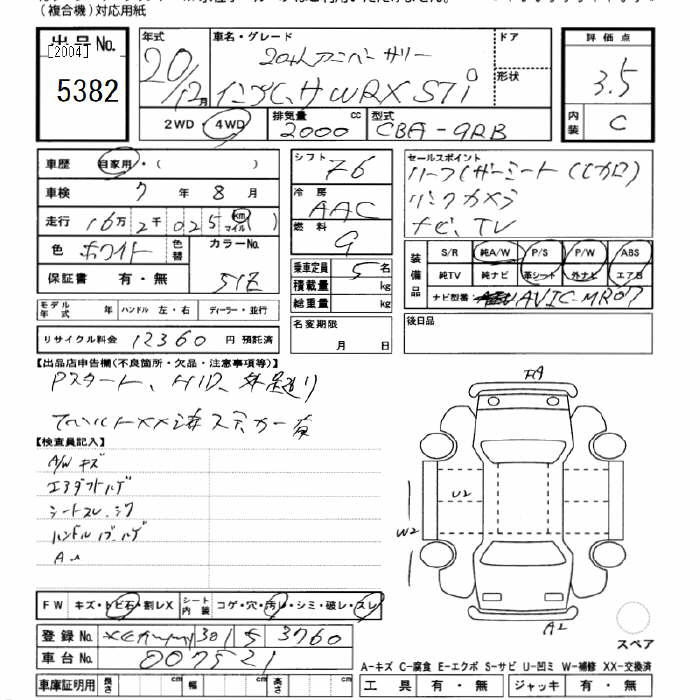 (複合機)対応用紙
出品No.
[2004]
5382
年式
20/12月
車名・グレード
20thアニバーサリー
インプレッサWRX STi
ドア
形状
2WD・4WD
排気量 cc
2000
型式
CBA-GRB
評価点
3.5
内装
C
車歴 自家用・( )
車検 7年 8月
走行 16万 2千 025 km マイル ( )
色 ホワイト 色替 カラーNo.
保証書 有・無 51E
モデル年式 年 ハンドル 左・右 ディーラー・並行
リサイクル料金 12360 円 預託済
シフト F6
冷房 AAC
燃料 G
乗車定員 5名
積載量 kg
総重量 kg
名変期限
月 日
セールスポイント
リンクカメラ
ナビ、TV
装備品
S/R 純A/W P/S P/W ABS
純TV 純ナビ 革シート 外ナビ エアB
ナビ型番 AVIC-MR07
後日品
【出品店申告欄(不良箇所・欠品・注意事項等)】
Pスタート、HID、
【検査員記入】
A/W キズ
エアダクトハゲ
シートスレ、シワ
ハンドル
FW キズ・トビ石・割レX シート内装 コゲ・穴・汚レ・シミ・破レ・スレ
登録No. 301 3760
車台No. 007521
車庫証明用 長さ cm 幅 cm 高さ cm
U2
W2
A2
スペア
A-キズ C-腐食 E-エクボ S-サビ U-凹ミ W-補修 XX-交換済
工具 有・無 ジャッキ 有・無